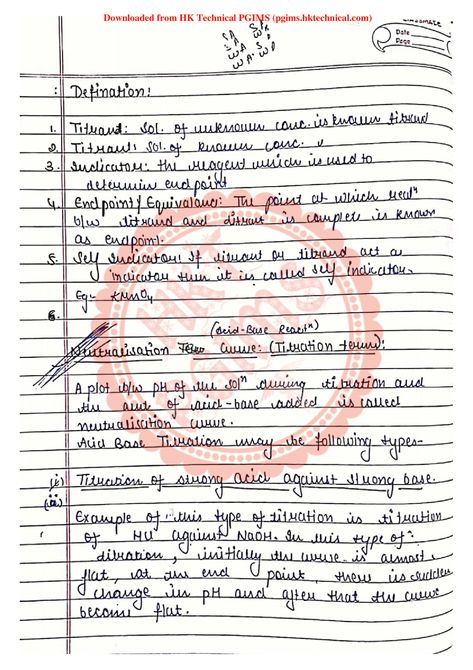 Downloaded from HK Technical PGIMS (pgims.hktechnical.com)
classmate
Date
Page
SA SB
SA WB
WA SB
WA WB
: Defination:
1. Titrand: Sol. of unknown conc. is known titrand
2. Titrant: Sol. of known conc. "
3. Indicator: the reagent which is used to
determin end point
4. Endpoint/Equivalent: The point at which reacn
b/w titrand and titrant is complete is known
as endpoint.
5. Self Indicator: If titrant or titrand act a
indicator then it is called self indicator.
Eg:- KMnO4
6.
(Acid-Base Reactn)
Neutralisation Curve: (Titration term):
A plot b/w pH of the soln during titration and
the amt of acid-base added is called
neutralisation curve.
Acid Base Titration may be following types-
(i) Titration of strong acid against strong base.
Example of this type of titration is titration
of HCl against NaOH. In this type of
titration, initially the curve is almost
flat, at the end point, there is sudden
change in pH and after that the curve
become flat.
HK
PGIMS